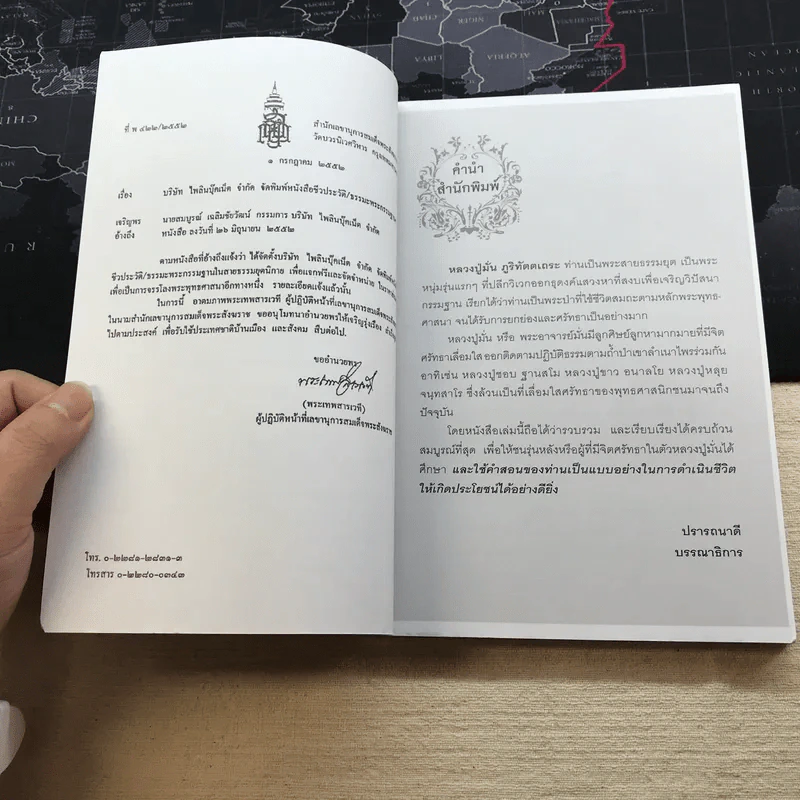 ที่ พ ๔๒๒/๒๕๕๒
สำนักเลขานุการสมเด็จพระสังฆ
วัดบวรนิเวศวิหาร
๑ กรกฎาคม ๒๕๕๒
เรื่อง บริษัท ไพลินบุ๊คเน็ต จำกัด จัดพิมพ์หนังสือชีวประวัติ/ธรรมะพระกรรมฐาน
เจริญพร นายสมบูรณ์ เฉลิมชัยวัฒน์ กรรมการ บริษัท ไพลินบุ๊คเน็ต จำกัด
อ้างถึง หนังสือ ลงวันที่ ๒๖ มิถุนายน ๒๕๕๒
ตามหนังสือที่อ้างถึงแจ้งว่า ได้จัดตั้งบริษัท ไพลินบุ๊คเน็ต จำกัด
ชีวประวัติ/ธรรมะพระกรรมฐานในสายธรรมยุตนิกาย เพื่อแจกฟรีและจัดจำหน่าย
เพื่อเป็นการจรรโลงพระพุทธศาสนาอีกทางหนึ่ง รายละเอียดแจ้งแล้วนั้น
ในการนี้ อาตมภาพพระเทพสารเวที ผู้ปฏิบัติหน้าที่เลขานุการสมเด็จพระสังฆราช
ในนามสำนักเลขานุการสมเด็จพระสังฆราช ขออนุโมทนาอำนวยพรให้เจริญรุ่งเรือง
ไปตามประสงค์ เพื่อรับใช้ประเทศชาติบ้านเมือง และสังคม สืบต่อไป.
ขออำนวยพร
(พระเทพสารเวที)
ผู้ปฏิบัติหน้าที่เลขานุการสมเด็จพระสังฆราช
โทร. ๐-๒๒๘๑-๒๘๓๑-๓
โทรสาร ๐-๒๒๘๐-๐๓๔๓
คำนำ
สำนักพิมพ์
หลวงปู่มั่น ภูริทัตตเถระ ท่านเป็นพระสายธรรมยุต เป็นพระ
หนุ่มรุ่นแรกๆ ที่ปลีกวิเวกออกธุดงค์แสวงหาที่สงบเพื่อเจริญวิปัสนา
กรรมฐาน เรียกได้ว่าท่านเป็นพระป่าที่ใช้ชีวิตสมถะตามหลักพระพุทธ-
ศาสนา จนได้รับการยกย่องและศรัทธาเป็นอย่างมาก
หลวงปู่มั่น หรือ พระอาจารย์มั่นมีลูกศิษย์ลูกหามากมายที่มีจิต
ศรัทธาเลื่อมใส ออกติดตามปฏิบัติธรรมตามถ้ำป่าเขาลำเนาไพรร่วมกัน
อาทิเช่น หลวงปู่ชอบ ฐานสโม หลวงปู่ขาว อนาลโย หลวงปู่หลุย
จนฺทสาโร ซึ่งล้วนเป็นที่เลื่อมใสศรัทธาของพุทธศาสนิกชนมาจนถึง
ปัจจุบัน
โดยหนังสือเล่มนี้ถือได้ว่ารวบรวม และเรียบเรียงได้ครบถ้วน
สมบูรณ์ที่สุด เพื่อให้ชนรุ่นหลังหรือผู้ที่มีจิตศรัทธาในตัวหลวงปู่มั่นได้
ศึกษา และใช้คำสอนของท่านเป็นแบบอย่างในการดำเนินชีวิต
ให้เกิดประโยชน์ได้อย่างดียิ่ง
ปรารถนาดี
บรรณาธิการ